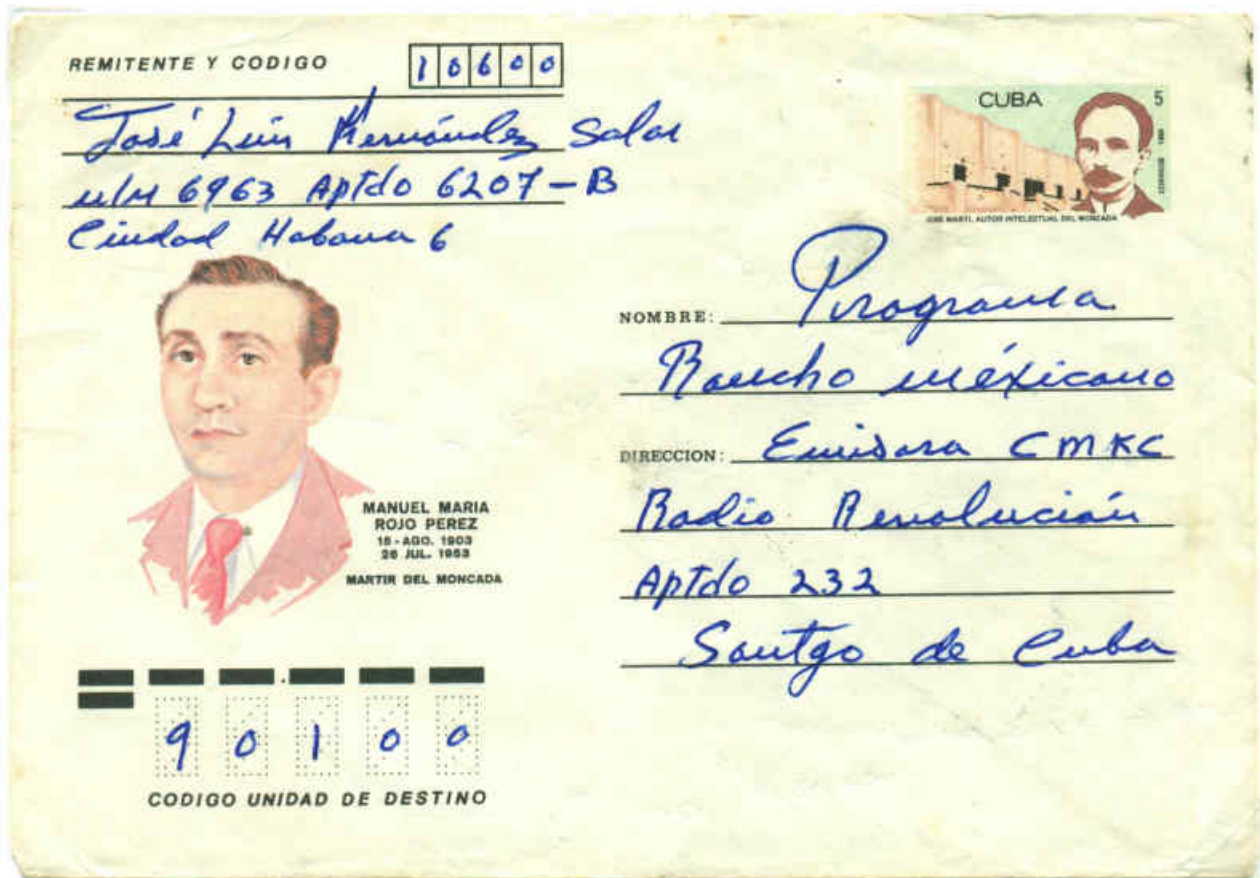 REMITENTE Y CODIGO 10600
José Luis Hernández Salas
u/m 6963 Aptdo 6207-B
Ciudad Habana 6
CUBA 5
JOSE MARTI, AUTOR INTELECTUAL DEL MONCADA
NOMBRE: Programa
Rancho méxicano
DIRECCION: Emisora CMKC
Radio Revolución
Aptdo 232
Santgo de Cuba
MANUEL MARIA
ROJO PEREZ
15-AGO. 1903
26 JUL. 1953
MARTIR DEL MONCADA
90100
CODIGO UNIDAD DE DESTINO